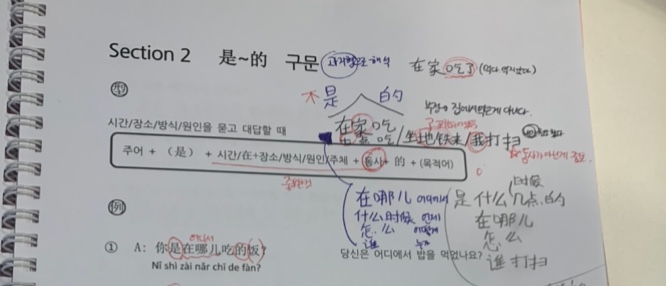 Section 2 是~的 구문 과거형으로 해석
在家吃了
型
不是 的
시간/장소/방식/원인을 묻고 대답할 때
在家吃
/坐地铁来/我打扫
주어 + (是) + 시간/在+장소/방식/원인/주체 + 동사 + 的 + (목적어)
在哪儿 어디에서
什么时候 언제
怎么 어떻게
谁 누가
是什么时候
几点 的
在哪儿
怎么
谁打扫
例
어디서
① A: 你是在哪儿吃的饭? 당신은 어디에서 밥을 먹었나요?
Nǐ shì zài nǎr chī de fàn?